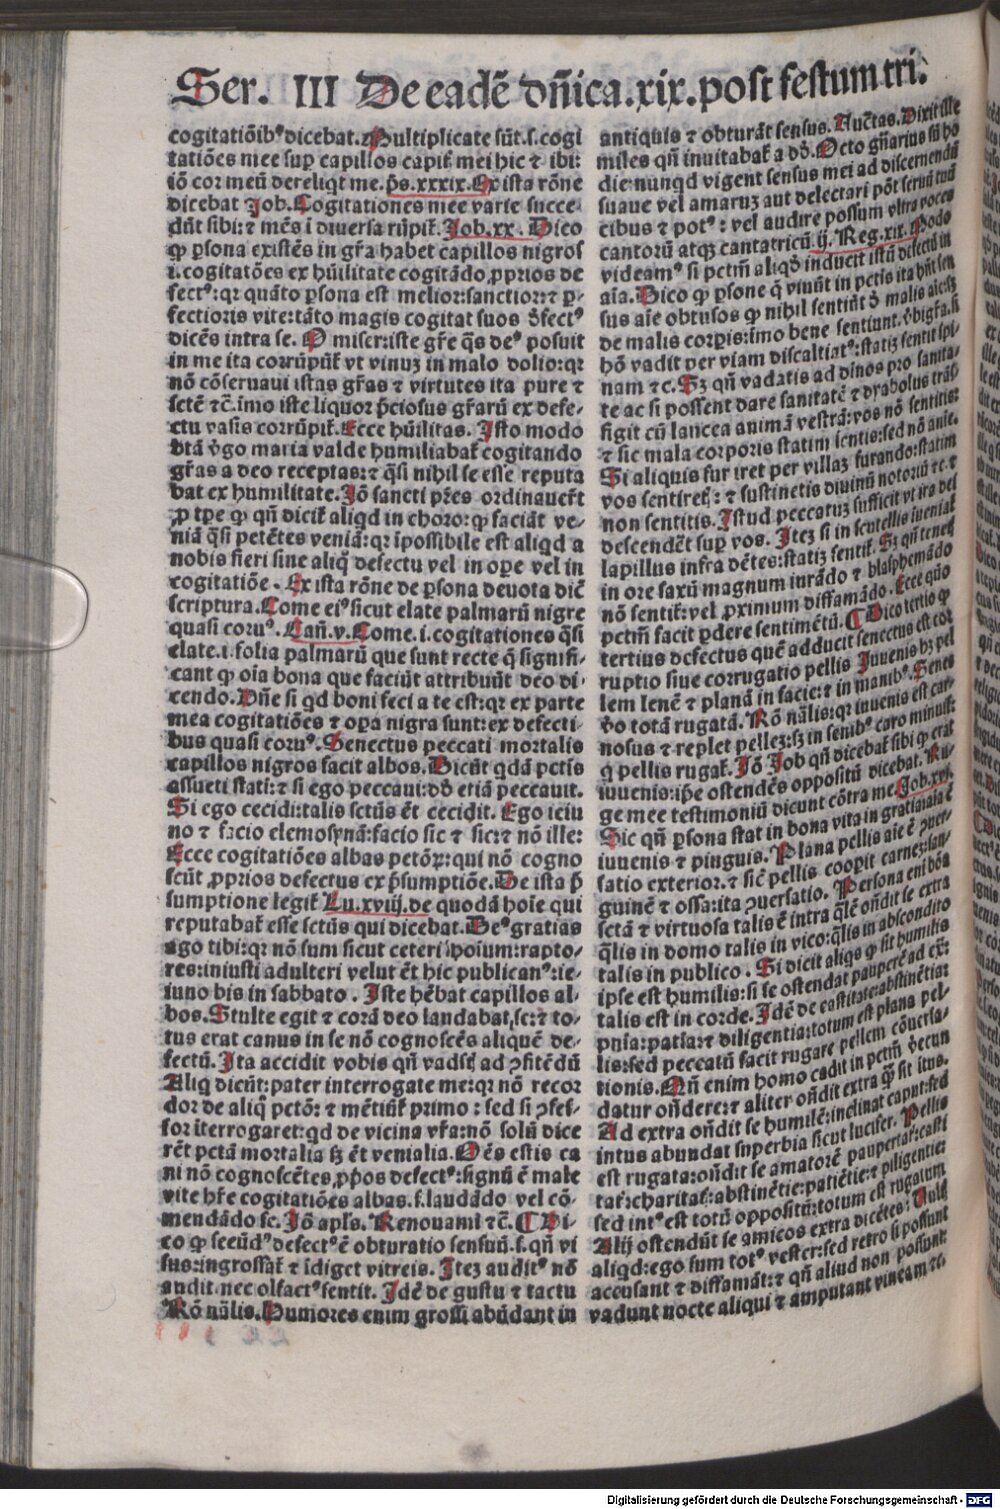 Ser. III De eadē dn̄ica.xix.post festum tri.
cogitatiōibꝰ dicebat. Multiplicate sūt.s.cogi
tatiões mee sup capillos capit̄ mei hic ⁊ ibi:
iō cor meū dereliqt me. p̄s.xxxix. Ex ista rōne
dicebat Job. Cogitationes mee varie succe
dūt sibi: ⁊ mēs ī diuersa rūpit̄. Job.xx. Dico
ꝙ ꝑsona existēs in gr̄a habet capillos nigros
i.cogitatōes ex hūilitate cogitādo ꝓprios de
fectꝰ: qr quāto ꝑsona est melior: sanctior: ⁊ ꝑ-
fectioris vite: tāto magis cogitat suos d̓fectꝰ
dicēs intra se. O miser: iste gr̄e q̄s deꝰ posuit
in me ita corrūpūt̄ vt vinuꝫ in malo dolio: qr
nō cōseruaui istas gr̄as ⁊ virtutes ita pure ⁊
sctē ⁊c̄. imo iste liquor p̄ciosus gr̄arū ex defe-
ctu vasis corrūpit̄. Ecce hūilitas. Isto modo
btā v̓go maria valde humiliabat̄ cogitando
gr̄as a deo receptas: ⁊ q̄si nihil se esse reputa
bat ex humilitate. Iō sancti pr̄es ordinauer̄t
ꝓ tpe ꝙ qn̄ dicit̄ aliqd in choro: ꝙ faciāt ve-
niā q̄si petētes veniā: qr īpossibile est aliqd a
nobis fieri sine aliq̄ defectu vel in oꝑe vel in
cogitatiōe. Ex ista rōne de ꝑsona deuota dic̄
scriptura. Come eiꝰ sicut elate palmarū nigre
quasi coruꝰ. Can̄.v. Come.i.cogitationes q̄si
elate.i.folia palmarū que sunt recte q̄ signifi-
cant ꝙ oīa bona que faciūt attribuūt deo di-
cendo. Dn̄e si qd boni feci a te est: qr ex parte
mea cogitatiões ⁊ oꝑa nigra sunt: ex defecti-
bus quasi coruꝰ. Senectus peccati mortalis
capillos nigros facit albos. Dicūt qdā pctīs
assueti stati: ⁊ si ego peccaui: dd̓ etiā peccauit.
Si ego cecidi: talis sctūs ēt cecidit. Ego ieiu
no ⁊ facio elemosynā: facio sic ⁊ sic: ⁊ nō ille:
Ecce cogitatiões albas petōꝝ: qui nō cogno
scūt ꝓprios defectus ex p̄sumptiōe. De ista p̄
sumptione legit̄ Lu.xviij. de quodā hoīe qui
reputabat̄ esse sctūs qui dicebat. Deꝰ gratias
ago tibi: qr nō sum sicut ceteri hoīum: rapto-
res: iniusti adulteri velut ēt hic publicanꝰ: ie-
iuno bis in sabbato. Iste hēbat capillos al-
bos. Stulte egit ⁊ corā deo laudabat se: ⁊ to-
tus erat canus in se nō cognoscēs aliquē de-
fectū. Ita accidit vobis qn̄ vadit̄ ad ꝯfitēdū
Aliq dicūt: pater interrogate me: qr nō recor
dor de aliq̄ pctō: ⁊ mētiūt̄ primo: sed si ꝯfes-
sor īterrogaret: qd de vicina vr̄a: nō solū dice
rēt pctā mortalia sꝫ ēt venialia. Oēs estis ca
ni nō cognoscētes ꝓpos defectꝰ: signū ē male
vite hr̄e cogitatiões albas.s.laudādo vel cō-
mendādo se. Iō apls. Renouami ⁊c̄. ¶ Di-
co ꝙ secūdꝰ defectꝰ ē obturatio sensuū.s.qn̄ vi
sus: ingrossat̄ ⁊ īdiget vitreis. Iteꝫ auditꝰ nō
audit. nec olfactꝰ sentit. Idē de gustu ⁊ tactu
Rō nālis. Humores enim grossi abūdant in
antiquis ⁊ obturāt sensus. Auctas. Dixit ille
miles qn̄ inuitabat̄ a dd̓. Octo gn̄arius sū ho
die: nunqd vigent sensus mei ad discernendū
suaue vel amaruꝫ aut delectari pōt seruū tuū
cibus ⁊ potꝰ: vel audire possum vltra voces
cantorū atqꝫ cantatricū. ij. Reg.xix. Modo
videamꝰ si pctm̄ aliqd̓ inducit istū defectū in
aīa. Dico ꝙ ꝑsone q̄ viuūt in pctīs ita hn̄t sen
sus aīe obtusos ꝙ nihil sentiūt d̓ malis aīe: sꝫ
de malis corpis: imo bene sentiunt. v̓bigr̄a. si
hō vadit per viam discaltiatꝰ: statiꝫ sentit spi-
nam ⁊c. Sꝫ qn̄ vadatis ad diuos pro sanita-
te ac si possent dare sanitatē ⁊ dyabolus trās
figit cū lancea animā vestrā: vos nō sentitis:
⁊ sic mala corporis statim sentis: sed nō anie.
Si aliquis fur iret per villaꝫ furando: statim
vos sentiret̄: ⁊ sustinetis diuinū notoriū ⁊c. ⁊
non sentitis. Istud peccatuꝫ sufficit vt ira dei
descendēt sup vos. Iteꝫ si in scutellis iueniat̄
lapillus infra dētes: statiꝫ sentit̄. Sꝫ qn̄ tenet̄
in ore saxū magnum iurādo ⁊ blasphemādo
nō sentit̄: vel ꝓximum diffamādo. Ecce quō
pctm̄ facit ꝑdere sentimētū. ¶ Dico tertio ꝙ
tertius defectus quē adducit senectus est cor
ruptio siue corrugatio pellis Iuuenis hꝫ pel
lem lenē ⁊ planā in facie: ⁊ in manibꝰ. Senes
v̓o totā rugatā. Rō nālis: qr iuuenis est car-
nosus ⁊ replet pelleꝫ: sꝫ in senibꝰ caro minuit̄:
q pellis rugat̄. Iō Job qn̄ dicebat̄ sibi ꝙ erat
iuuenis: ip̄e ostendēs oppositū dicebat. Ru-
ge mee testimoniū dicunt cōtra me Job.xvi.
Sic qn̄ ꝑsona stat in bona vita in gratia: aīa ē
iuuenis ⁊ pinguis. Plana pellis aīe ē ꝯuer-
satio exterior. ⁊ sic̄ pellis coopit carneꝫ: san-
guinē ⁊ ossa: ita ꝯuersatio. Persona enī bōa
sctā ⁊ virtuosa talis ē intra q̄lē on̄dit se extra
q̄lis in domo talis in vico: q̄lis in abscondito
talis in publico. Si dicit aliqs ꝙ sit humilis
ipse est humilis: si se ostendat pauperē ad ex̄:
talis est in corde. Idē de castitate: abstinētia:
pn̄ia: patīa: ⁊ diligentia: totum est plana pel-
lis: sed peccatū facit rugare pellem cōuersa-
tionis. Qn̄ enim homo cadit in pctm̄ v̓ecun
datur on̄dere: ⁊ aliter on̄dit extra q̄ꝫ sit itus.
Ad extra on̄dit se humilē: inclinat caput: sed
intus abundat superbia sicut lucifer. Pellis
est rugata: on̄dit se amatorē paupertat̄: casti
tat̄: charitat̄: abstinētie: patiētie: ⁊ diligentie:
sed intꝰ est totū oppositū: totum est rugatum
Alij ostendūt se amicos extra dicētes: Vult̄
aliqd: ego sum totꝰ vester: sed retro si possunt
accusant ⁊ diffamāt: ⁊ qn̄ aliud non possunt:
vadunt nocte aliqui ⁊ amputant vineam ⁊c.
Digitalisierung gefördert durch die Deutsche Forschungsgemeinschaft - DFG